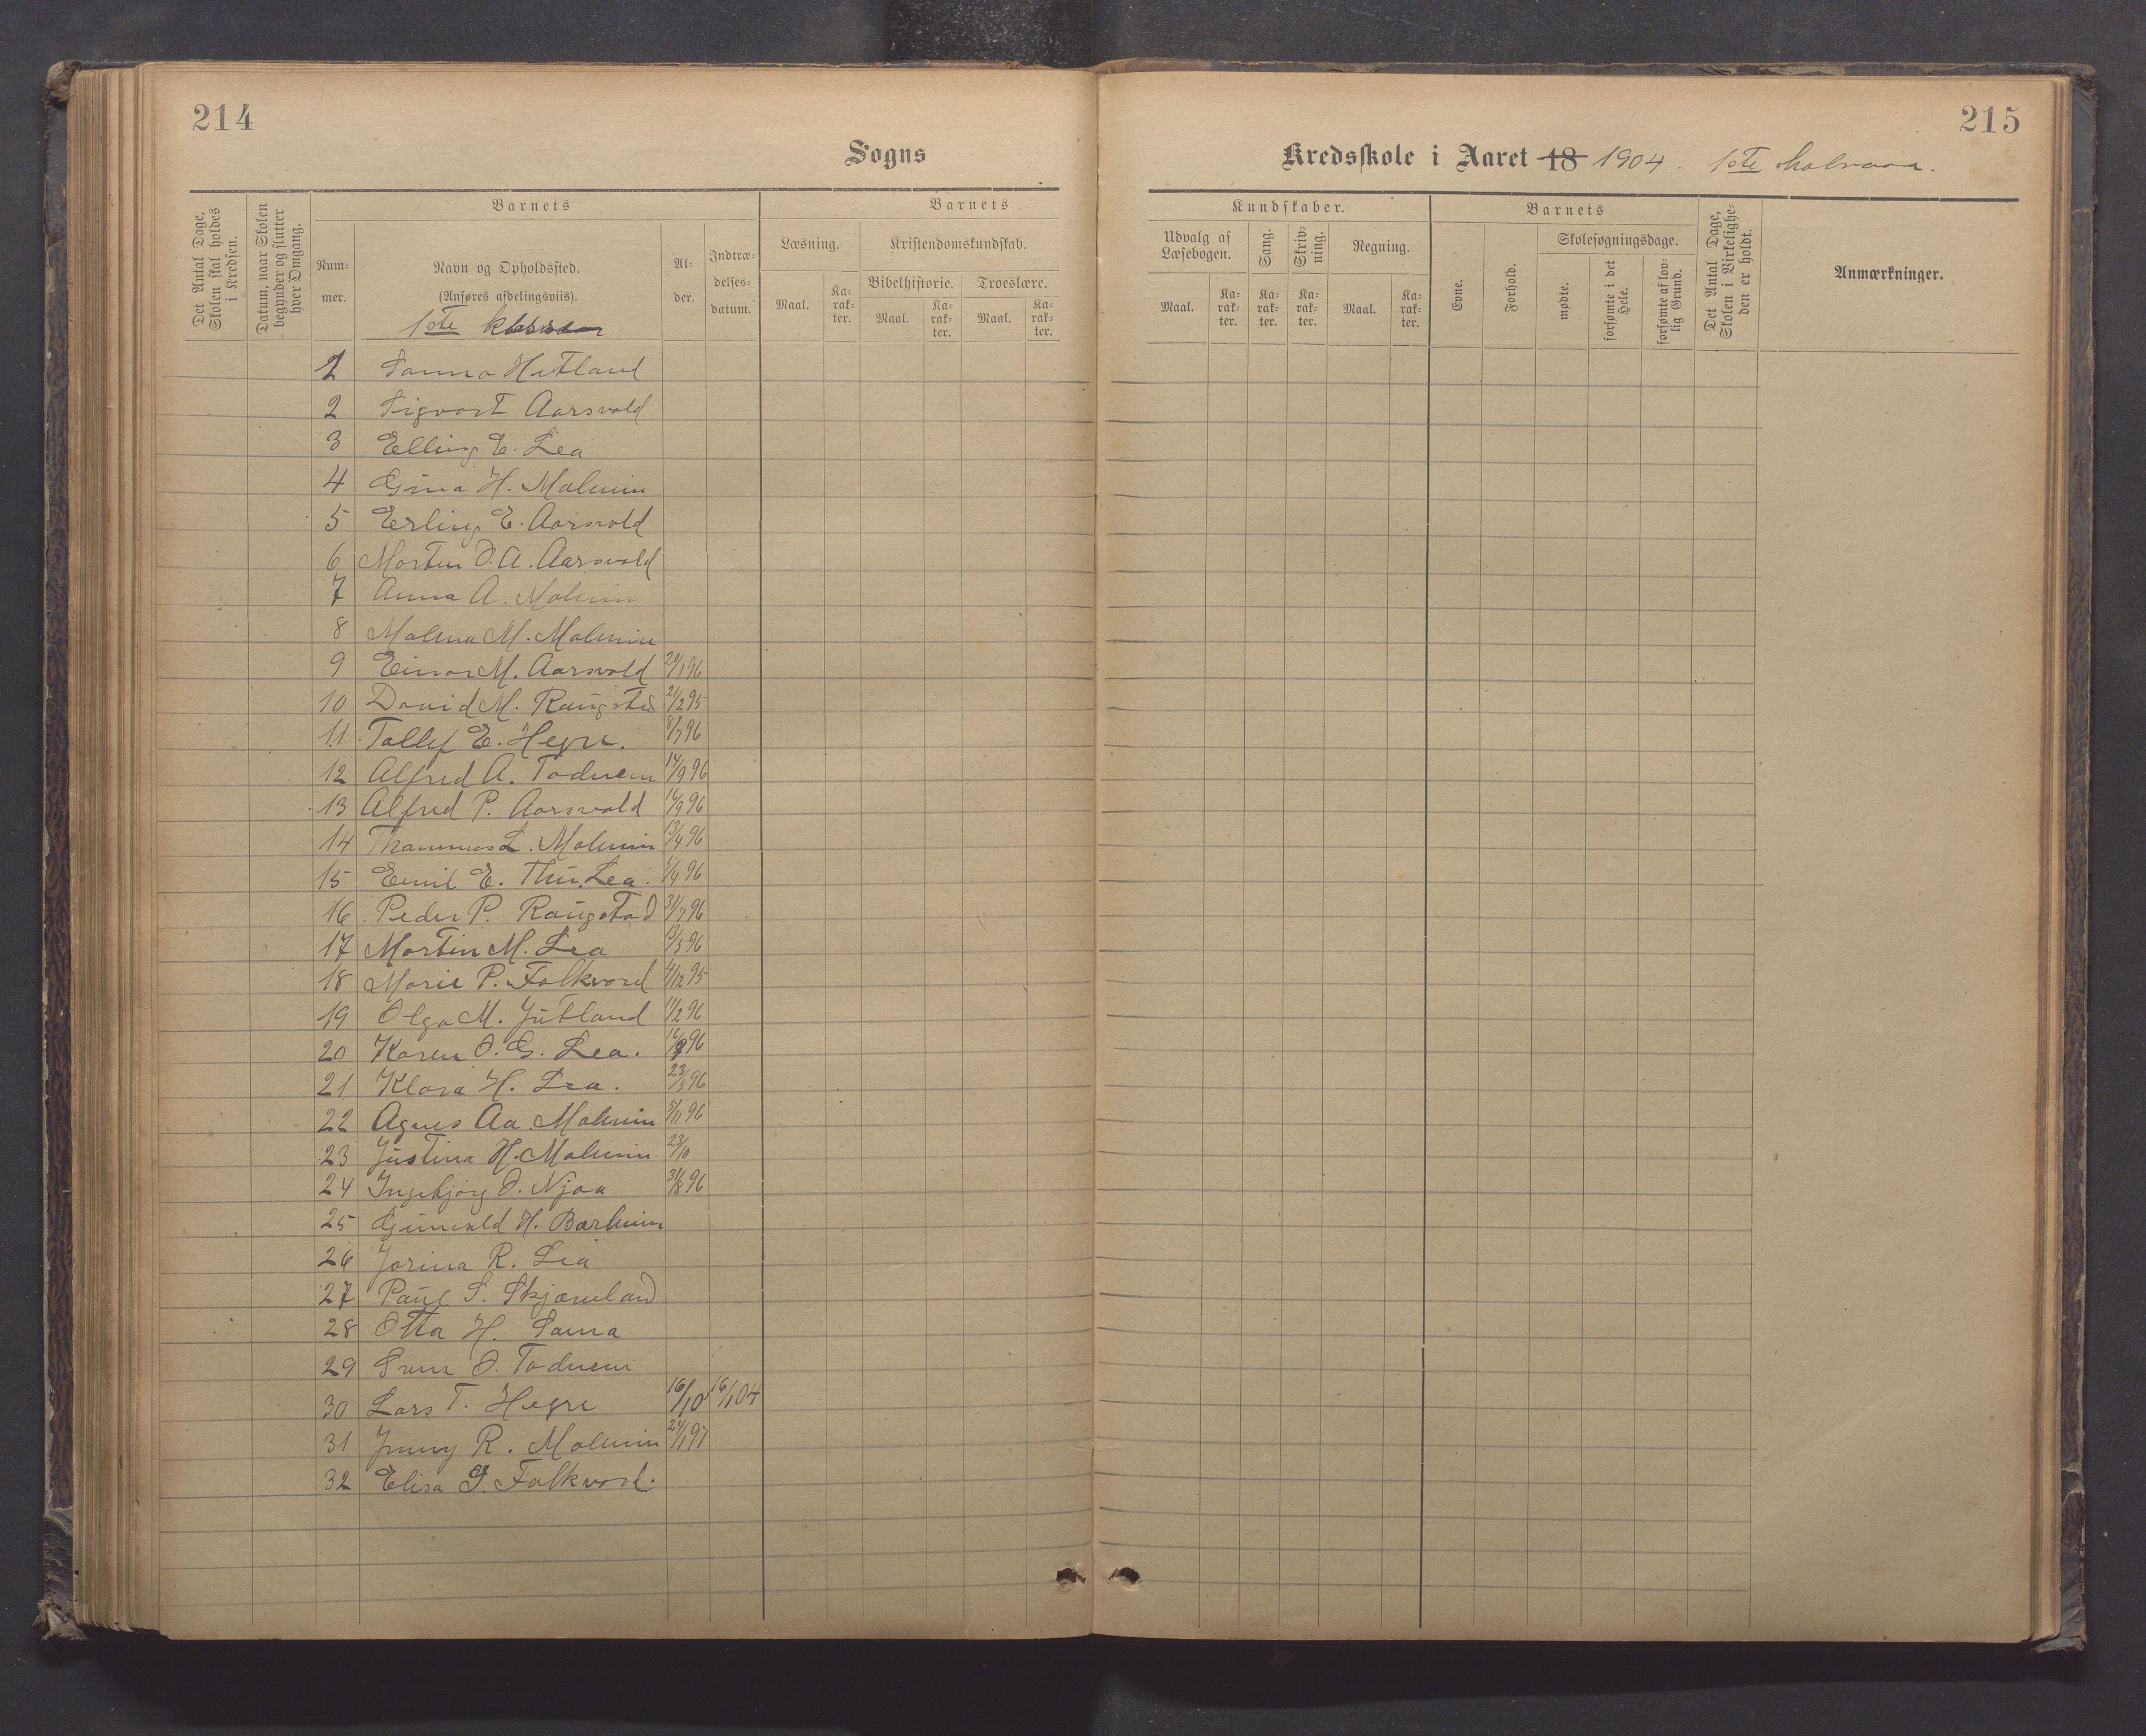 214
215
Sogns
Kredsskole i Aaret 18 1904. 1ste halvaar.
Det Antal Dage, Skolen skal holdes i Kredsen.
Datum, naar Skolen begynder og slutter hver Omgang.
Barnets
Num-
mer.
Navn og Opholdssted.
(Anføres afdelingsviis).
1ste klasse
Al-
der.
Indtræ-
delses-
datum.
Barnets
Læsning.
Maal.
Ka-
rak-
ter.
Kristendomskundskab.
Bibelhistorie.
Maal.
Ka-
rak-
ter.
Troeslære.
Maal.
Ka-
rak-
ter.
Kundskaber.
Udvalg af
Læsebogen.
Maal.
Ka-
rak-
ter.
Sang.
Ka-
rak-
ter.
Skriv-
ning.
Ka-
rak-
ter.
Regning.
Maal.
Ka-
rak-
ter.
Barnets
Evne.
Forhold.
Skolesøgningsdage.
mødte.
forsømte i det
Hele.
forsømte af lov-
lig Grund.
Det Antal Dage,
Skolen i Virkelighe-
den er holdt.
Anmærkninger.
1 Sanna Hetland
2 Sigvart Aarsvold
3 Elling E. Lea
4 Gina H. Malmin
5 Erling E. Aarsvold
6 Morten O. A. Aarsvold
7 Anna A. Malmin
8 Malena M. Malmin
9 Einar M. Aarsvold 20/1 96
10 David M. Raugstad 21/2 95
11 Tollef E. Hegre. 8/7 96
12 Alfred A. Todnem 14/9 96
13 Alfred P. Aarsvold 16/9 96
14 Thammes L. Malmin 13/4 96
15 Emil E. Thu, Lea. 5/4 96
16 Peder P. Raugstad 31/7 96
17 Martin M. Lea 13/5 96
18 Marie P. Folkvord 4/12 95
19 Olga M. Jutland 11/2 96
20 Karen O. G. Lea. 16/9 96
21 Klara H. Lea. 23/5 96
22 Agnes Aa. Malmin 5/11 96
23 Justina H. Malmin 23/10
24 Ingebjørg O. Njaa 31/8 96
25 Gunvald H. Barheim
26 Jorina R. Lea
27 Paul S. Skjæveland
28 Otta H. Sama
29 Svene O. Todnem
30 Lars T. Hegre 16/10 16/1 04
31 Jenny R. Malmin 24/1 97
32 Elisa G. Folkvord.